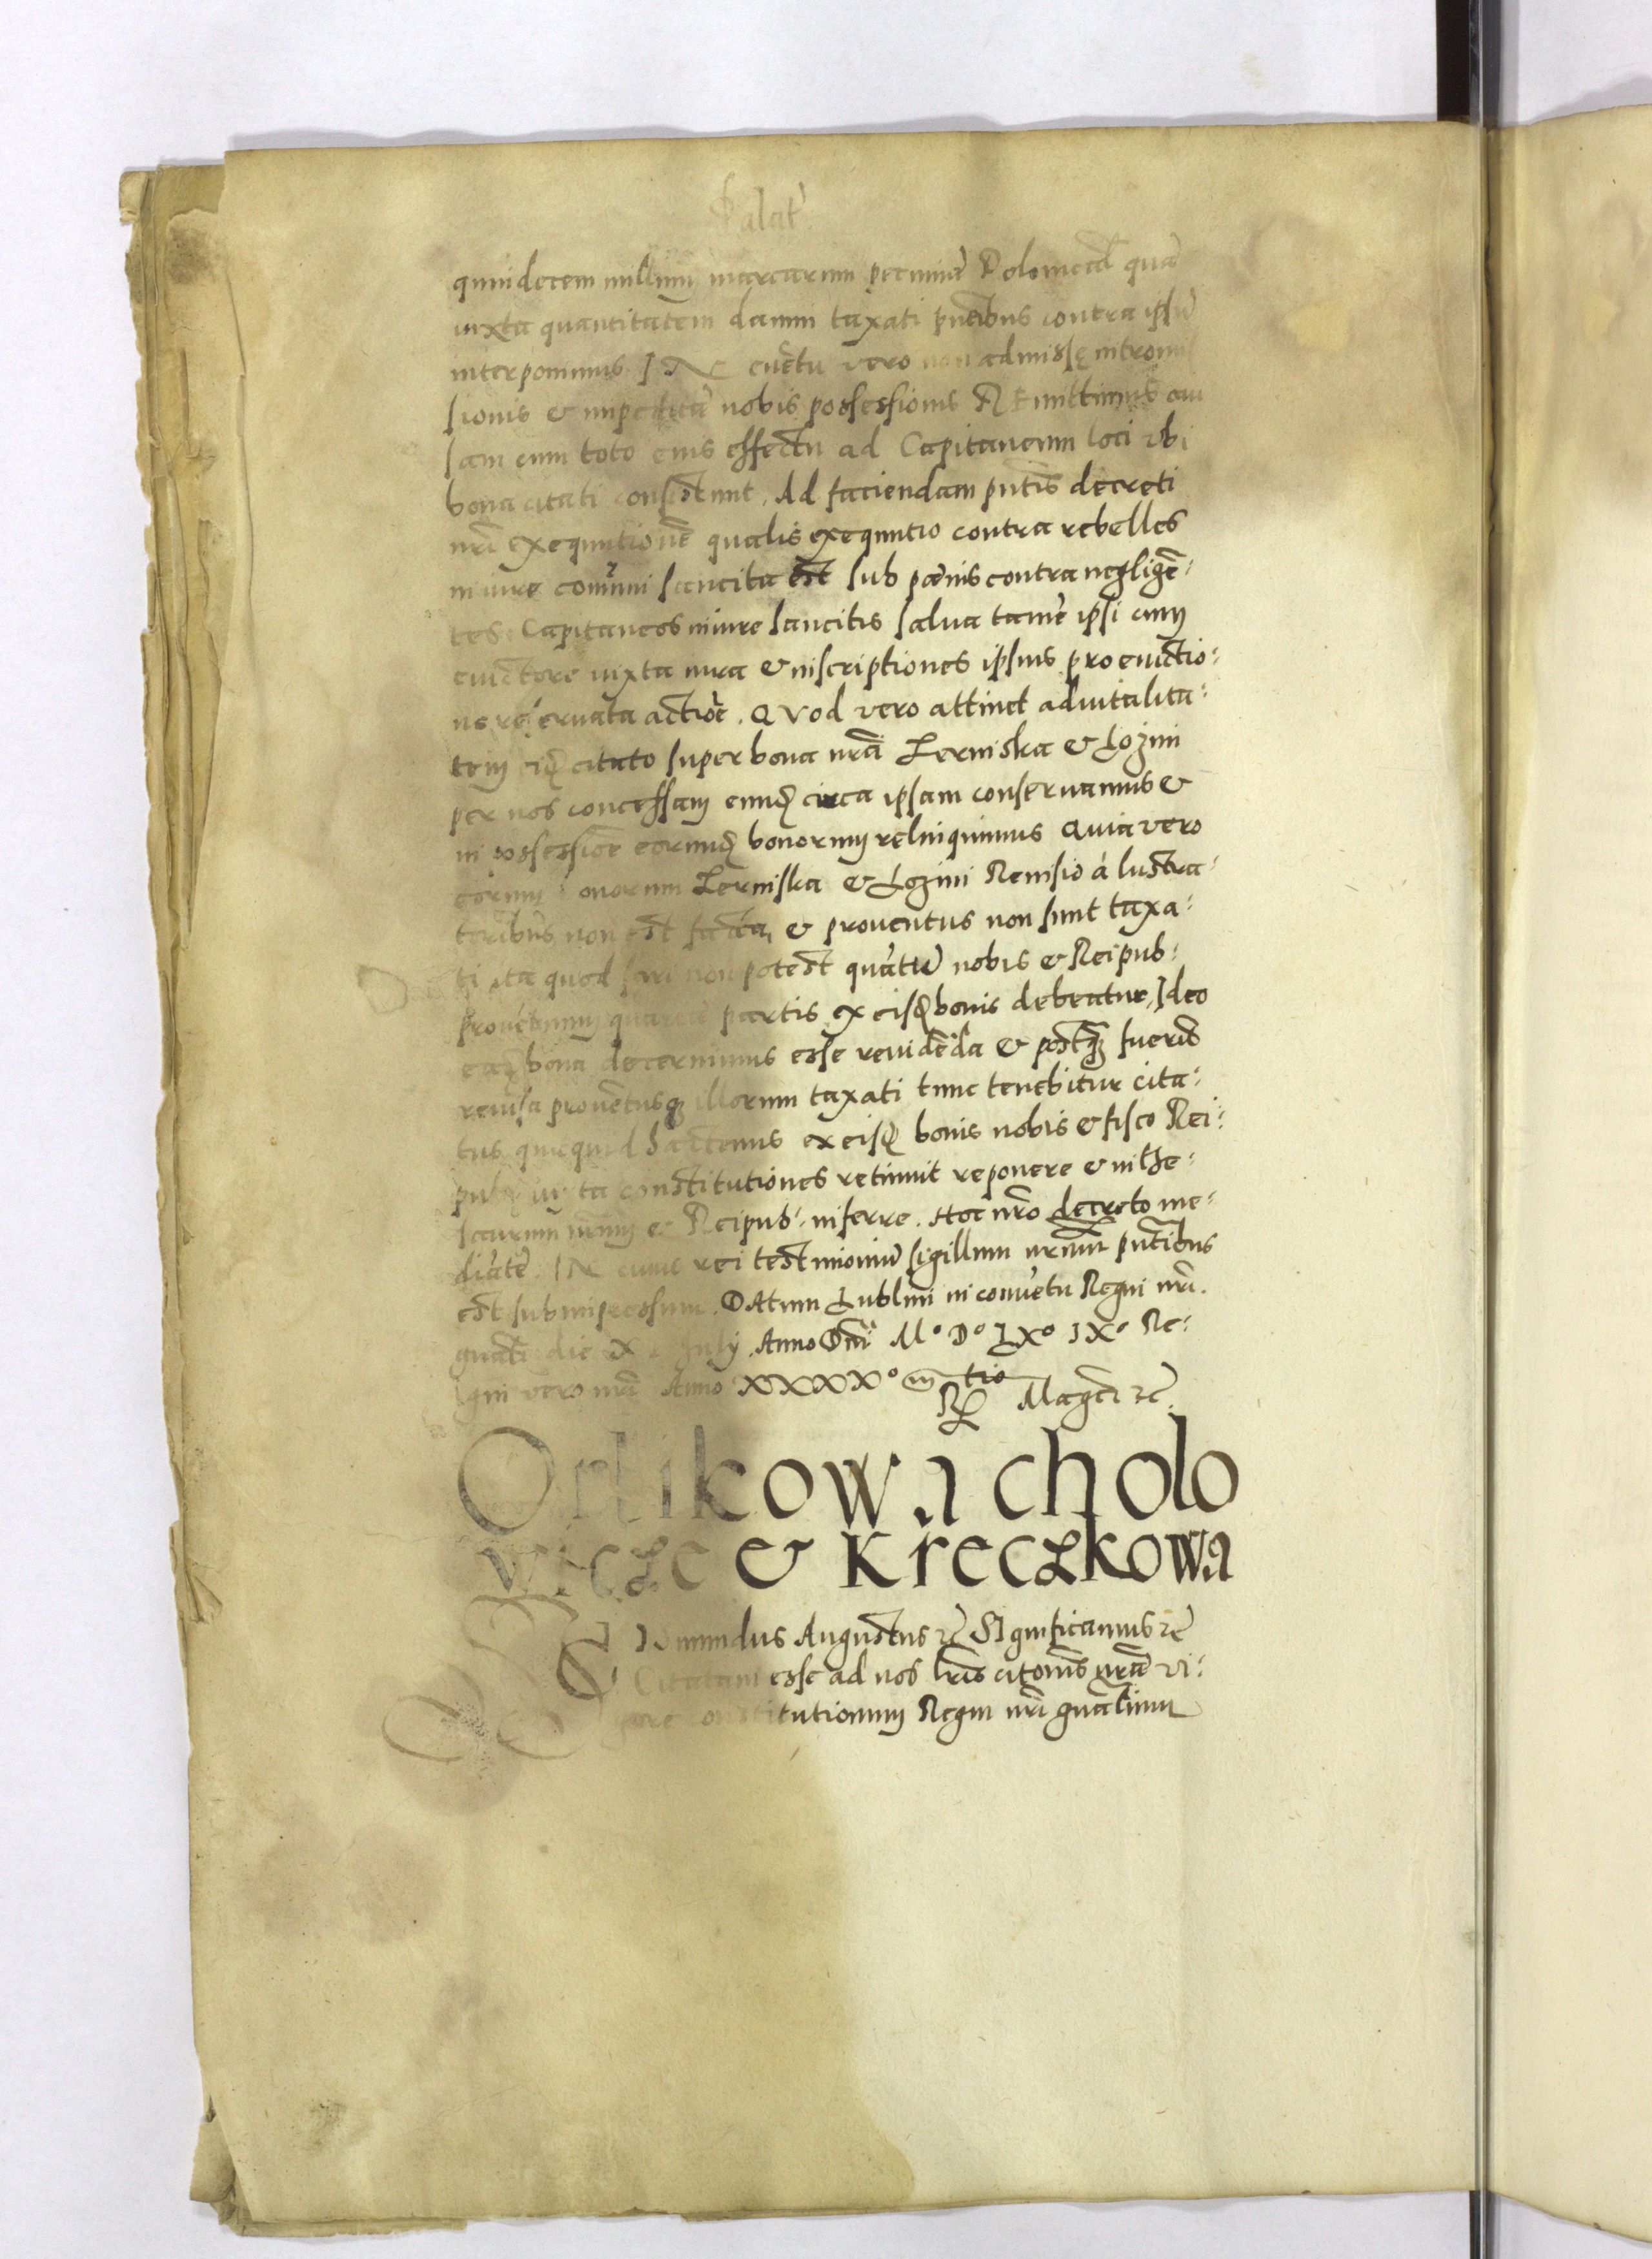 Palat
quindecem millium marcarum pecuniæ Polonical quā
iuxta quantitatem damni taxati pntibus contra ipsū
interponimus IN euētu vero non admissę intromis
sionis & impeditæ nobis possessionis REmittimus cau
sam cum toto eius effectu ad Capitaneum loci vbi
bona citati consistunt. Ad faciendam pntis decreti
nri exequutionē qualis exequutio contra rebelles
in iure comuni sancita est sub pœnis contra negligē-
tes Capitaneos in iure sancitis salua tamē ipsi cum
euictore iuxta iura & inscriptiones ipsius pro euictio-
ne reseruata actiōe. QVod vero attinet aduitalita-
tem citato super bona nrā Lerniska & Lozini
per nos concessam circa ipsam conseruamus &
in possessiōe bonorum relinquimus QVia vero
eorum bonorum Lerniska & Lozini Reuisio à lustra-
toribus non est facta, & prouentus non sunt taxa-
ti ita quod sciri non potest quātū nobis & Reipub-
prouentuum quartæ partis ex eisd bonis debeatur, Ideo
bona decernimus esse reuidēda & postq fuerīt
reuisa prouētusq illorum taxati tunc tenebitur cita-
tus quicquid hactenus ex eisd bonis nobis & fisco Rei-
pub iuxta constitutiones retinuit reponere & in the-
saurum nrum & Reipub- inferre. Hoc nro decreto me-
diāte. IN cuius rei testimoniū sigillum nrum pntibus
est subimpressum. DAtum Lublini in conuētu Regni nri.
gnali die X July Anno Dni M° D° LX° IX° Re-
gni vero nri Anno XXXX°
Rl Magci rc
Orlikowa cholo
wicze & Kreczkowa
SIgismundus Augustus rc SIgnificamus rc
Citatam esse ad nos lris citonis nræ vi-
gore constitutionum Regni nri gnalium